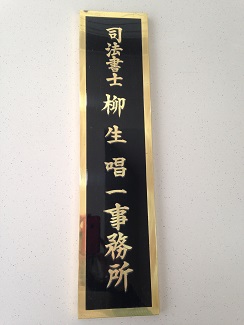 司法書士 柳生唱一事務所